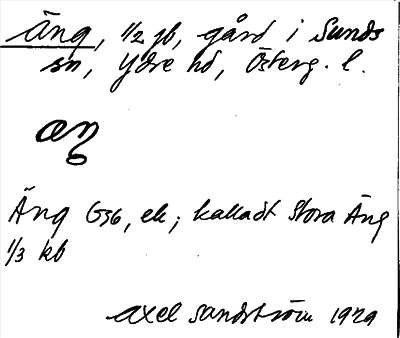 Äng, 1/2 jb, gård i Sunds
sn, Ydre hd, Österg. l.
æŋ
Äng G36, ek; kalladt Stora Äng
1/3 kb
Axel Sandström 1929